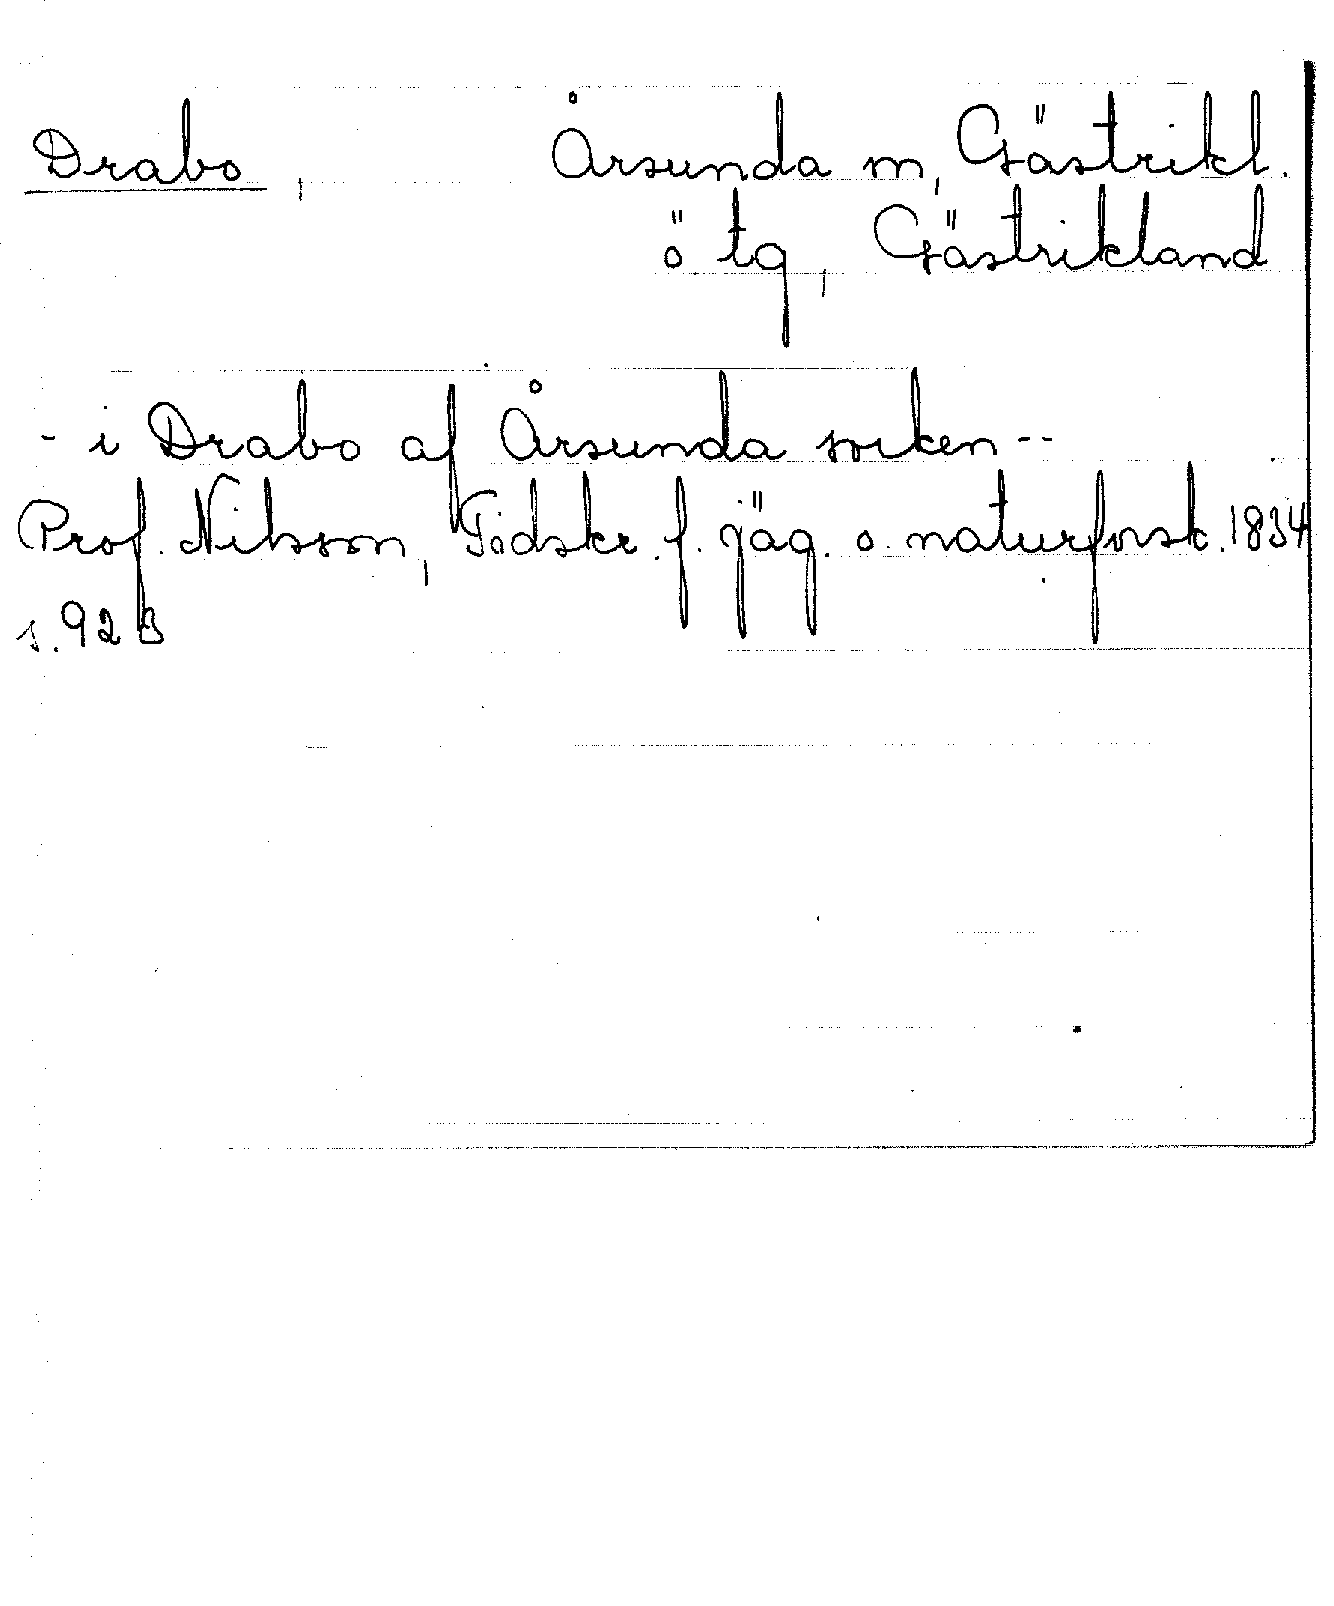 Drabo, Årsunda m, Gästrikl.
ö tg, Gästrikland
- i Drabo af Årsunda socken --
Prof. Nilsson, Tidskr. f. jäg. o. naturforsk. 1834
s. 923